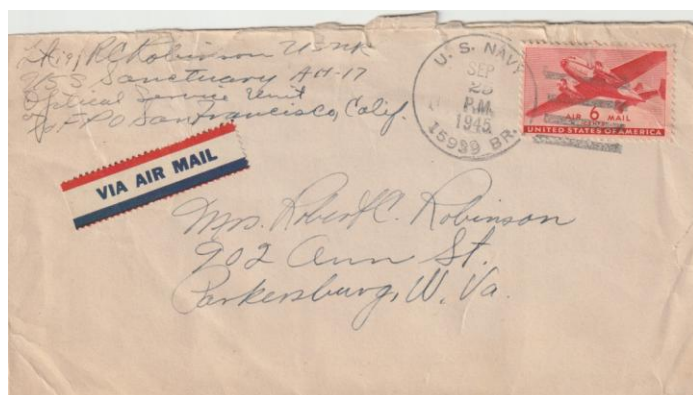 R C Robinson USNR
USS Sanctuary AH-17
Optical Service Unit
℅ F.P.O San Francisco, Calif.
U. S. NAVY
SEP
P.M.
1945
BR.
AIR 6 MAIL
CENTS
UNITED STATES OF AMERICA
VIA AIR MAIL
Mrs. Robert C. Robinson
902 Ann St.
Parkersburg, W. Va.